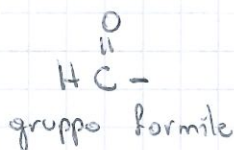 O
HC-
gruppo formile